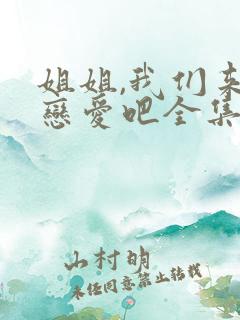 姐姐,我们来
戀愛吧全集
山村明
未经同意禁止转载